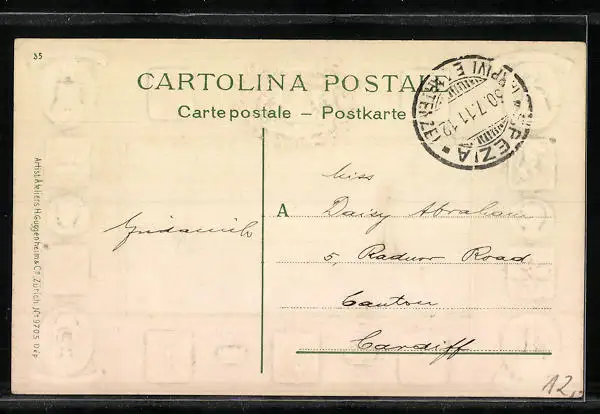 35
CARTOLINA POSTALE
Carte postale – Postkarte
SPEZIA
30.7.11.12
ARRIVI E PARTENZE
Miss
A Daisy Abraham
5, Radnor Road
Canton
Cardiff
Artist. Ateliers H. Guggenheim & Co., Zürich. No 9705 Dép.
12,-